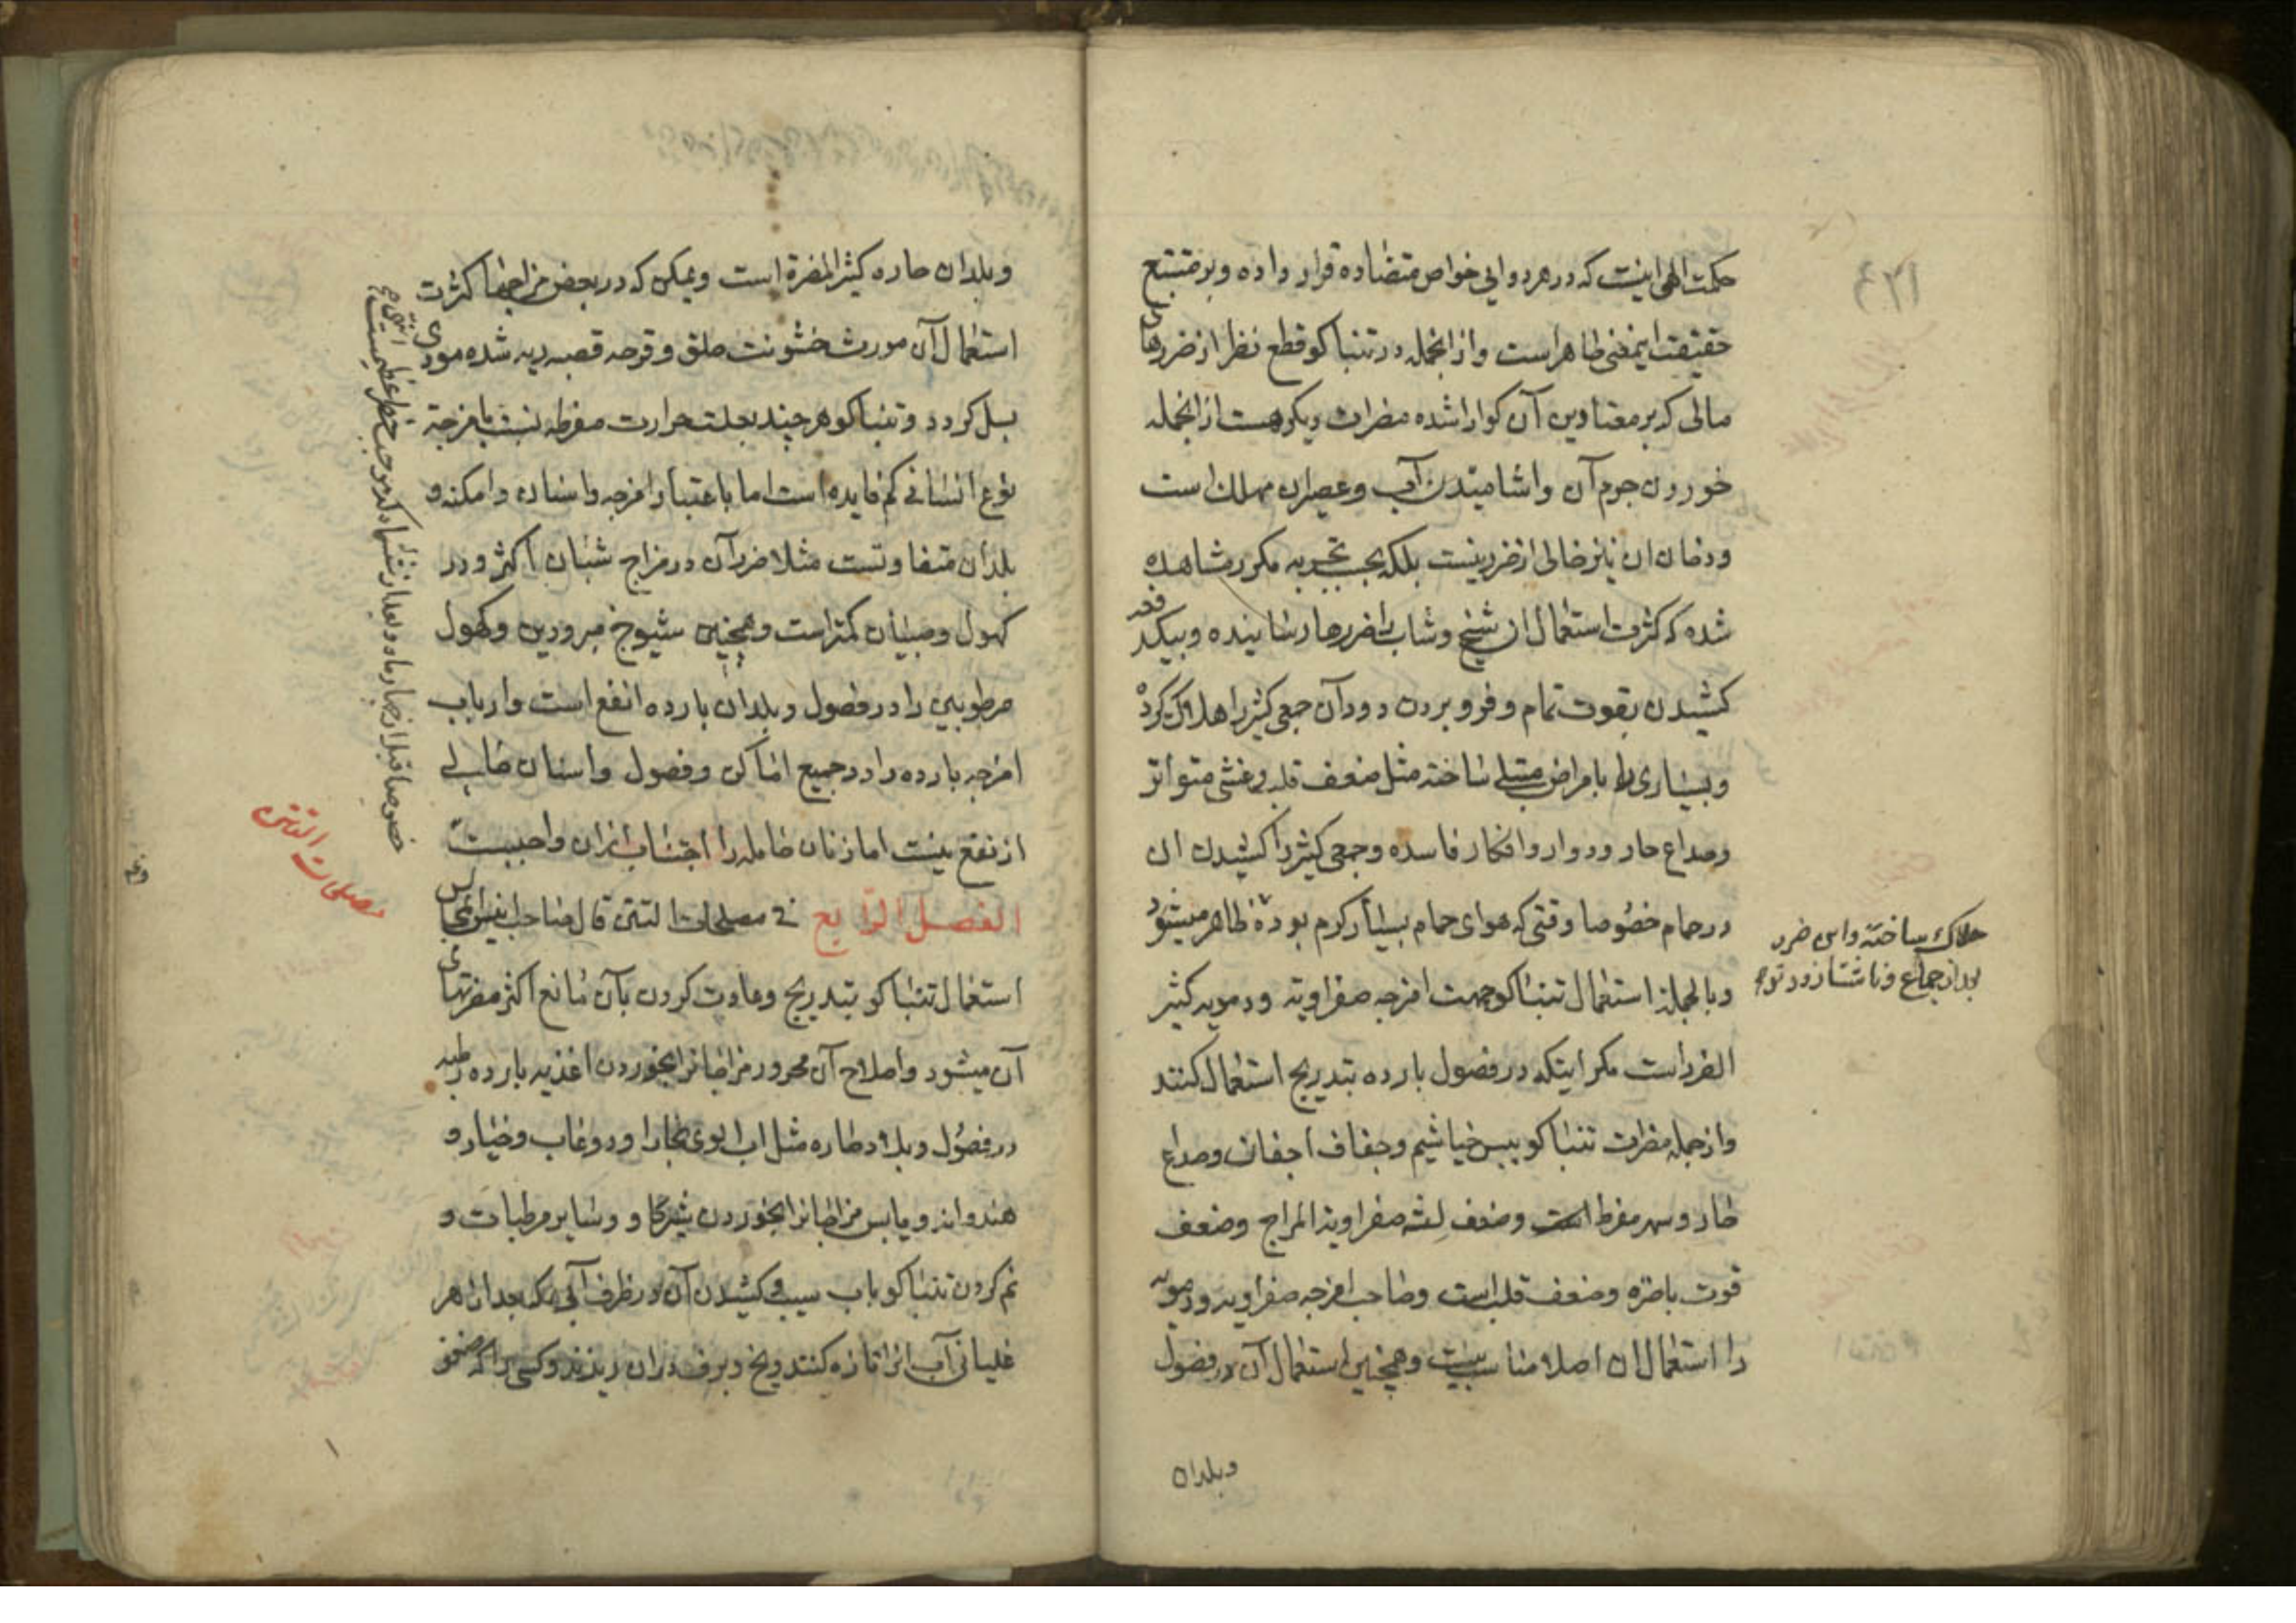 حکمت الهی اینست که در هر دوایی خواص متضاده قرار داده و بر متتبع
حقیقت اینمعنی ظاهر است و از انجمله در تنباکو قطع نظر از ضررهای
مالی که بر معتادین آن کوارا شده مضرات دیکر هست از انجمله
خوردن جرم آن و اشامیدن آب و عصیران مهلک است
و دخان ان نیز خالی از ضرر نیست بلکه بحسب تجربه مکرر مشاهده
شده که کثرت استعمال ان شیخ و شاب را ضررها رسانیده و بیکدفعه
کشیدن بقوت تمام و فرو بردن دود آن جمعی کثیر را هلاک کرده
و بسیاری را بامراض مبتلی ساخته مثل ضعف قلب و غشی متواتر
و صداع حار و دوار و افکار فاسده و جمعی کثیر را کشیدن ان
در حمام خصوصا وقتی که هوای حمام بسیار کرم بوده ظاهر میشود
هلاک ساخته و این ضرر
بعد از جماع و ناشتا زودتر
و بالجمله استعمال تنباکو جهت امزجه صفراویه و دمویه کثیر
الضرر است مکر اینکه در فصول بارده بتدریج استعمال کنند
و از جمله مضرات تنباکو یبس خیاشیم و جفاف اجفان و صداع
حار و سهر مفرط است و ضعف لثه صفراویة المزاج و ضعف
قوت باصره و ضعف قلب است و صاحب امزجه صفراویه و دمویه
را استعمال ان اصلا مناسب نیست و همچنین استعمال آن در فصول
و بلدان
و بلدان حاره کثیر المضرة است و یمکن که در بعض مزاجها کثرت
استعمال آن مورث خشونت حلق و قرحه قصبه ریه شده مودی
بسل کردد و تنباکو هر چند بعلت حرارت مفرطه نسبت بامزجة
نوع انسانی کم فایده است اما باعتبار امزجه و اسنان و امکنه و
بلدان متفاوتست مثلا ضرر آن در مزاج شبان اکثر و در
کهول و صبیان کمتر است و همچنین شیوخ مبرودین و کهول
مرطوبین را در فصول و بلدان بارده انفع است و ارباب
امزجه بارده را در جمیع اماکن و فصول و اسنان خالی
از نفع نیست اما زنان حامله را اجتناب ازان واجبست
خصوصا قبل از چهار ماه و بعد از ششماه که موجب خطر عظیمست
الفصل الرابع فی مصلحات التتن قال صاحب انیس المجالس
مصلحات التتن
استعمال تنباکو بتدریج و عادت کردن بآن مانع اکثر مضرتهای
آن میشود و اصلاح آن محرور مزاجانرا بخوردن اغذیه بارده رطبه
در فصول و بلاد حاره مثل اب الوی بخارا و دوغاب و خیار و
هندوانه و یابس مزاجانرا بخوردن شیر کاو و سایر مرطبات و
نم کردن تنباکو باب سیب و کشیدن آن در ظرف آبی که بعد از هر
غلیانی آب انرا تازه کنند و یخ و برف دران ریزند و کسی را که